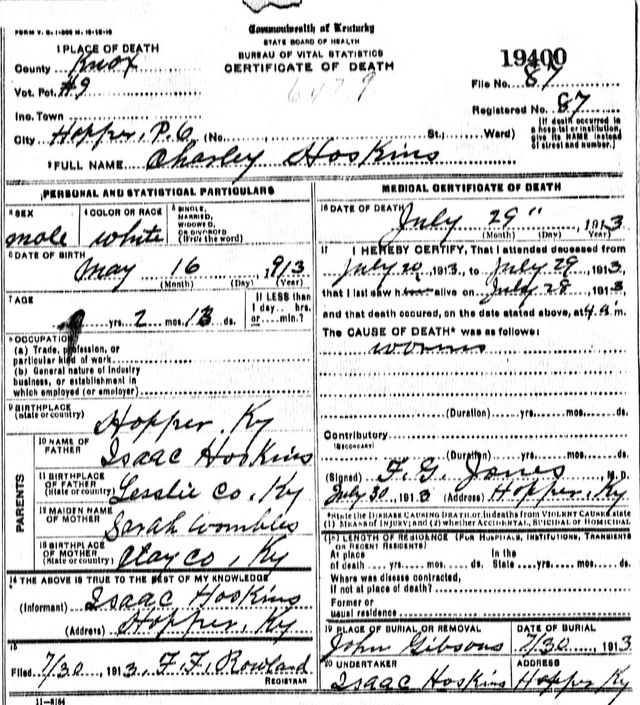 FORM V. S. 1-500 M. 10-15-10
Commonwealth of Kentucky
STATE BOARD OF HEALTH
BUREAU OF VITAL STATISTICS
CERTIFICATE OF DEATH
1 PLACE OF DEATH
County Knox
Vot. Pct. #9
Inc. Town
City Hopper, P.O. (No. St.; Ward)
19400
File No. 87
Registered No. 87
(If death occurred in
a hospital or institution,
give its NAME instead
of street and number.)
2 FULL NAME Charley Hoskins
PERSONAL AND STATISTICAL PARTICULARS
3 SEX
male
4 COLOR OR RACE
white
5 SINGLE,
MARRIED,
WIDOWED
OR DIVORCED
(Write the word)
6 DATE OF BIRTH
May 16 1913
(Month) (Day) (Year)
7 AGE
yrs. 2 mos. 13 ds.
If LESS than
1 day.... hrs.
or.... min.?
8 OCCUPATION
(a) Trade, profession, or
particular kind of work
(b) General nature of industry
business, or establishment in
which employed (or employer)
9 BIRTHPLACE
(State or country) Hopper, Ky
PARENTS
10 NAME OF
FATHER Isaac Hoskins
11 BIRTHPLACE
OF FATHER
(State or country) Lesslie Co, Ky
12 MAIDEN NAME
OF MOTHER Sarah Wombles
13 BIRTHPLACE
OF MOTHER
(State or country) Clay co, Ky
14 THE ABOVE IS TRUE TO THE BEST OF MY KNOWLEDGE
(Informant) Isaac Hoskins
(Address) Hopper, Ky
15
Filed 7/30, 1913, F. F. Rowland
REGISTRAR
11-8184
MEDICAL CERTIFICATE OF DEATH
16 DATE OF DEATH
July 29", 1913
(Month) (Day) (Year)
17 I HEREBY CERTIFY, That I attended deceased from
July 20, 1913, to July 29, 1913,
that I last saw him alive on July 28, 1913
and that death occured, on the date stated above, at 4 a.m.
The CAUSE OF DEATH* was as follows:
worms
(Duration) yrs. mos. ds.
Contributory
(SECONDARY)
(Duration) yrs. mos. ds.
(Signed) F. G. Jones, M.D.
July 30, 1913 (Address) Hopper, Ky
*State the DISEASE CAUSING DEATH, or, in deaths from VIOLENT CAUSES, state
(1) MEANS OF INJURY; and (2) whether ACCIDENTAL, SUICIDAL or HOMICIDAL
18 LENGTH OF RESIDENCE (FOR HOSPITALS, INSTITUTIONS, TRANSIENTS
OR RECENT RESIDENTS)
At place In the
of death yrs. mos. ds. State yrs. mos. ds.
Where was disease contracted,
if not at place of death?
Former or
usual residence
19 PLACE OF BURIAL OR REMOVAL
John Gibsons
DATE OF BURIAL
7/30, 1913
20 UNDERTAKER
Isaac Hoskins
ADDRESS
Hopper Ky